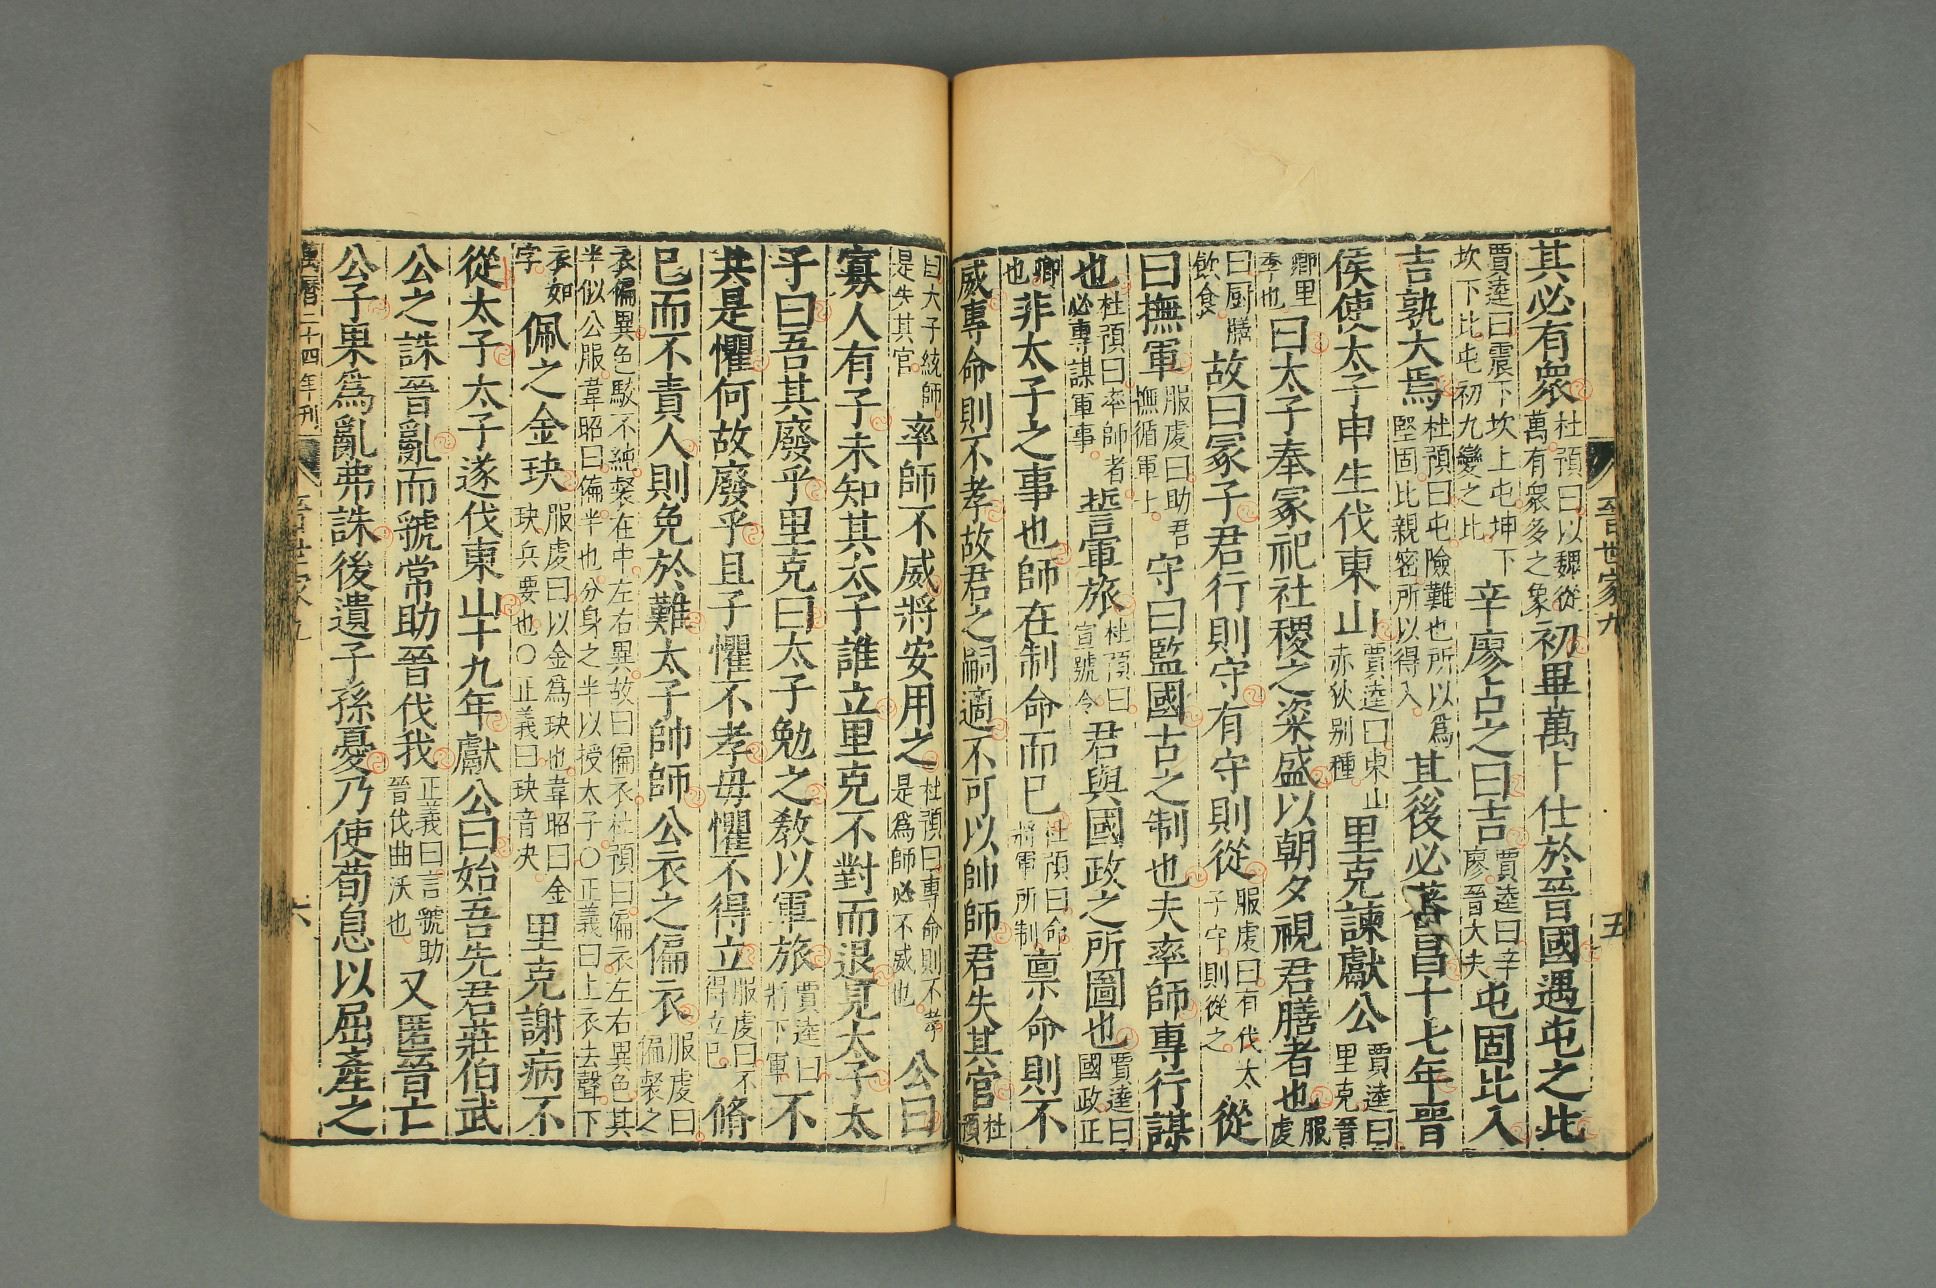 晉世家九
五
其必有衆杜預曰以魏從萬有衆多之象初畢萬卜仕於晉國遇屯之比
賈逵曰震下坎上屯坤下坎下比屯初九變之比辛廖占之曰吉賈逵曰辛廖晉大夫屯固比入
吉孰大焉杜預曰屯險難也所以爲堅固比親密所以得入其後必蕃昌十七年晉
侯使太子申生伐東山賈逵曰東山赤狄别種里克諫獻公賈逵曰里克晉
卿里季也曰太子奉冢祀社稷之粢盛以朝夕視君膳者也服虔
曰厨膳飲食故曰冢子君行則守有守則從服虔曰有代太子守則從之從
曰撫軍服虔曰助君撫循軍士守曰監國古之制也夫率師專行謀
也杜預曰率師者必專謀軍事誓軍旅杜預曰宣號令君與國政之所圖也賈逵曰國政正
卿也非太子之事也師在制命而已杜預曰命將軍所制稟命則不
威專命則不孝故君之嗣適不可以帥師君失其官杜預
曰太子統師是失其官率師不威將安用之杜預曰專命則不孝是爲師必不威也公曰
寡人有子未知其太子誰立里克不對而退見太子太
子曰吾其廢乎里克曰太子勉之教以軍旅賈逵曰將下軍不
共是懼何故廢乎且子懼不孝毋懼不得立服虔曰不得立己脩
已而不責人則免於難太子帥師公衣之偏衣服虔曰偏裻之
衣偏異色駁不純裻在中左右異故曰偏衣杜預曰偏衣左右異色其半似公服韋昭曰偏半也分身之半以授太子○正義曰上衣去聲下
衣如字佩之金玦服虔曰以金爲玦也韋昭曰金玦兵要也○正義曰玦音决里克謝病不
從太子太子遂伐東山十九年獻公曰始吾先君莊伯武
公之誅晉亂而虢常助晉伐我正義曰言虢助晉伐曲沃也又匿晉亡
公子果爲亂弗誅後遺子孫憂乃使荀息以屈產之
萬曆二十四年刊
晉世家九
六